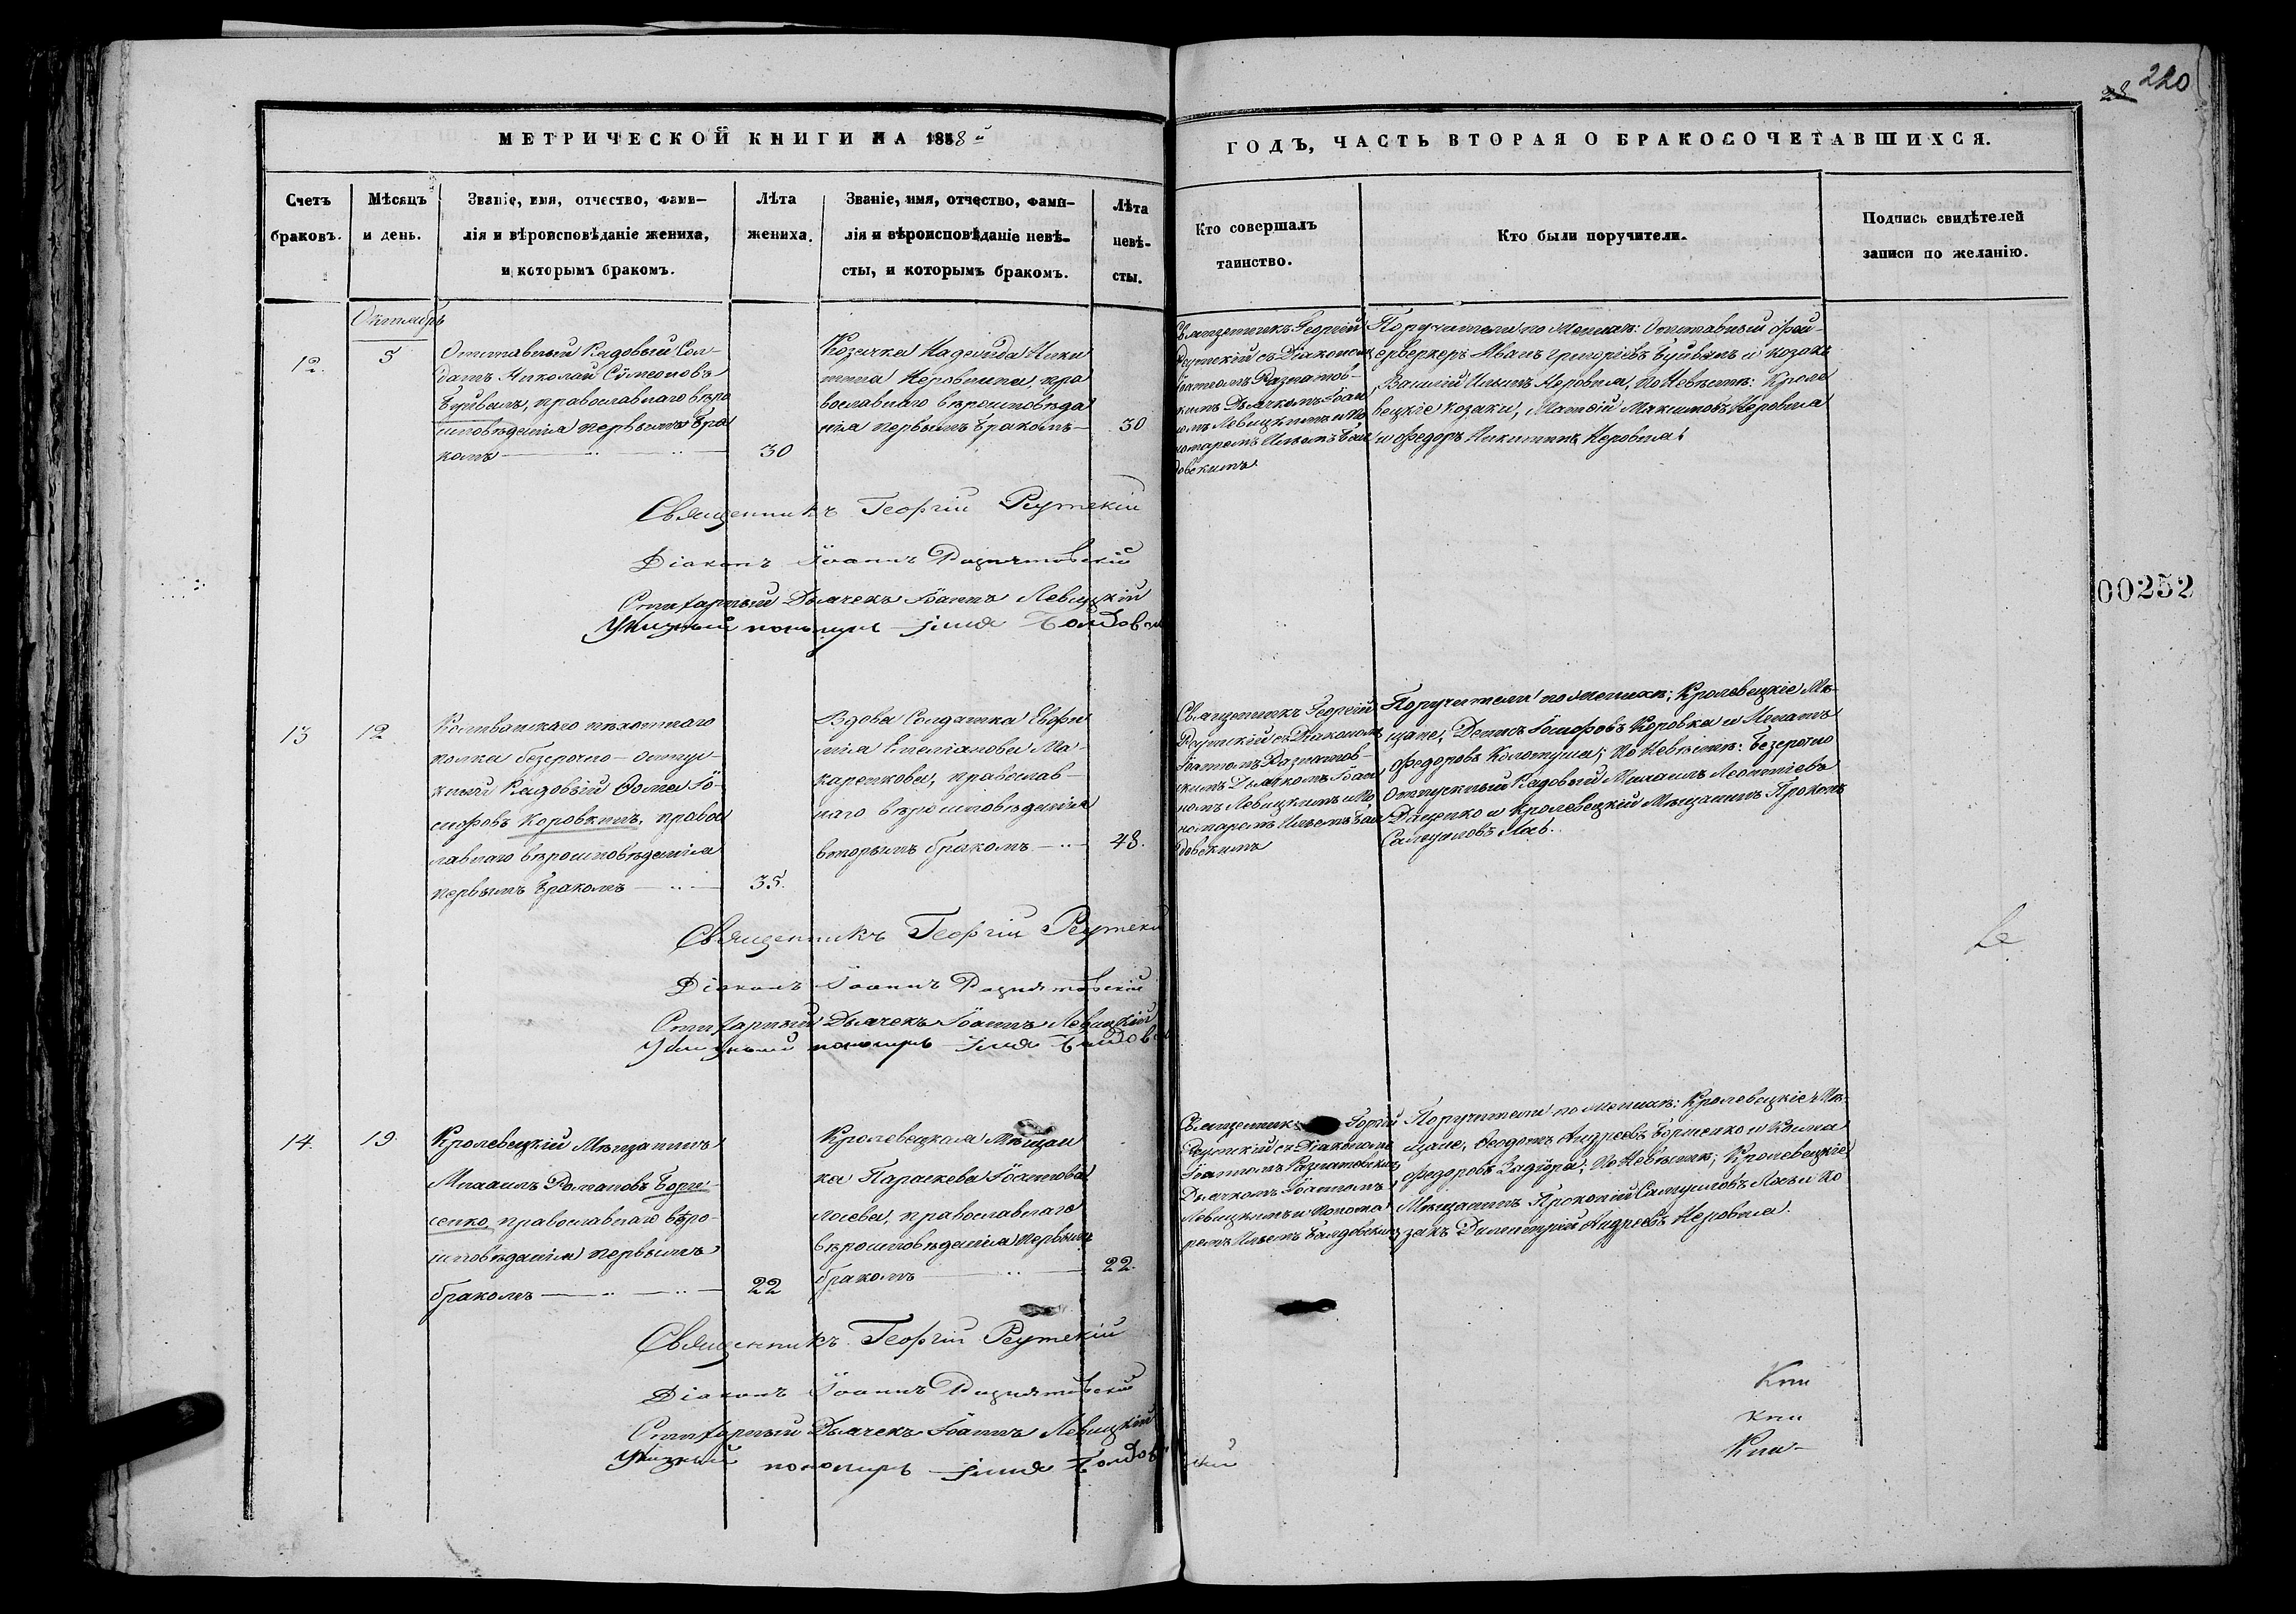 220
28
МЕТРИЧЕСКОЙ КНИГИ НА 1858й
ГОДЪ, ЧАСТЬ ВТОРАЯ О БРАКОСОЧЕТАВШИХСЯ.
Счетъ
браковъ.
Мѣсяцъ
и день.
Званіе, имя, отчество, фами-
лія и вѣроисповѣданіе жениха,
и которымъ бракомъ.
Лѣта
жениха.
Званіе, имя, отчество, фами-
лія и вѣроисповѣданіе невѣ-
сты, и которымъ бракомъ.
Лѣта
невѣ-
сты.
Кто совершалъ
таинство.
Кто были поручители.
Подпись свидѣтелей
записи по желанію.
Октябрь
12.
5
Отставный Рядовый Сол-
датъ Николай Сѵмеоновъ
Буйвалъ, православнаго вѣро
исповѣданія первымъ бра
комъ
30
Козачка Надежда Ники
тина Неровнина, пра
вославнаго вѣроисповѣда
нія первымъ бракомъ
30
Священникъ Георгій
Реутскій съ Діакономъ
Іоанномъ Разнатов-
скимъ Дьячкомъ Іоан
номъ Левицкимъ и По
номаремъ Ильемъ Бол
довскимъ
Поручители по Женихѣ: Отставный Фей-
ерверкеръ Иванъ Григоріевъ Буйвалъ и козакъ
Василій Ильинъ Неровня, По Невѣстѣ: Кроле
вецкіе козаки, Матѳій Максимовъ Неровня
и Федоръ Никитинъ Неровня
Священникъ Георгій Реутскій
Діаконъ Іоаннъ Разнатовскій
Стихарный Дьячекъ Іоаннъ Левицкій
Указный пономарь Илія Болдов
00252
13
12
полка безсрочно-отпус-
кный Рядовый Ѳома Іо-
сифовъ Коровкинъ, правос
лавнаго вѣроисповѣданія
первымъ бракомъ
35.
Вдова Солдатка Евфи
мія Емеліанова Ма-
каренкова, православ-
наго вѣроисповѣданія
вторымъ бракомъ
48.
Священникъ Георгій
Реутскій съ Діакономъ
Іоанномъ Разнатов-
скимъ Дьячкомъ Іоан
номъ Левицкимъ и По
номаремъ Ильемъ Бол
довскимъ
Поручители по Женихѣ: Кролевецкіе Мѣ-
щане, Денисъ Іосифовъ Коровка и Игнатъ
Федоровъ Колотуша; По Невѣстѣ: Безсрочно
Отпускный Рядовый Михаилъ Леонтіевъ
Даценко и Кролевецкій Мѣщанинъ Прокопъ
Самуиловъ Лаѣ.
Священникъ Георгій Реутскі
Діаконъ Іоаннъ Разнатовскій
Стихарный Дьячекъ Іоаннъ Левицкій
Указный пономарь Илія Болдов
14.
19.
Кролевецкій Мѣщанинъ
Михаилъ Романовъ Борис-
сенко, православнаго вѣро-
исповѣданія первымъ
бракомъ
22
Кролевецкая Мѣщан
ка Параскева Іоаннова
Лоева, православнаго
вѣроисповѣданія первымъ
бракомъ
22.
Священникъ Георгій
Реутскій съ Діакономъ
Іоанномъ Разнатовскимъ
Дьячкомъ Іоанномъ
Левицкимъ и Понома
ремъ Ильемъ Болдовскимъ
Поручители по Женихѣ: Кролевецкіе Мѣ-
щане, Ѳеодотъ Андреевъ Борисенко и Козма
Федоровъ Задѵора; По Невѣстѣ; Кролевецкіе,
Мѣщанинъ Прокопій Самуиловъ Лаѣ и Ко
закъ Димитрій Андреевъ Неровня.
Священникъ Георгій Реутскій
Діаконъ Іоаннъ Разнатовскій
Стихарный Дьячекъ Іоаннъ Левицкій
Указный пономарь Илія Болдовскій
Кни
кни
Кни-